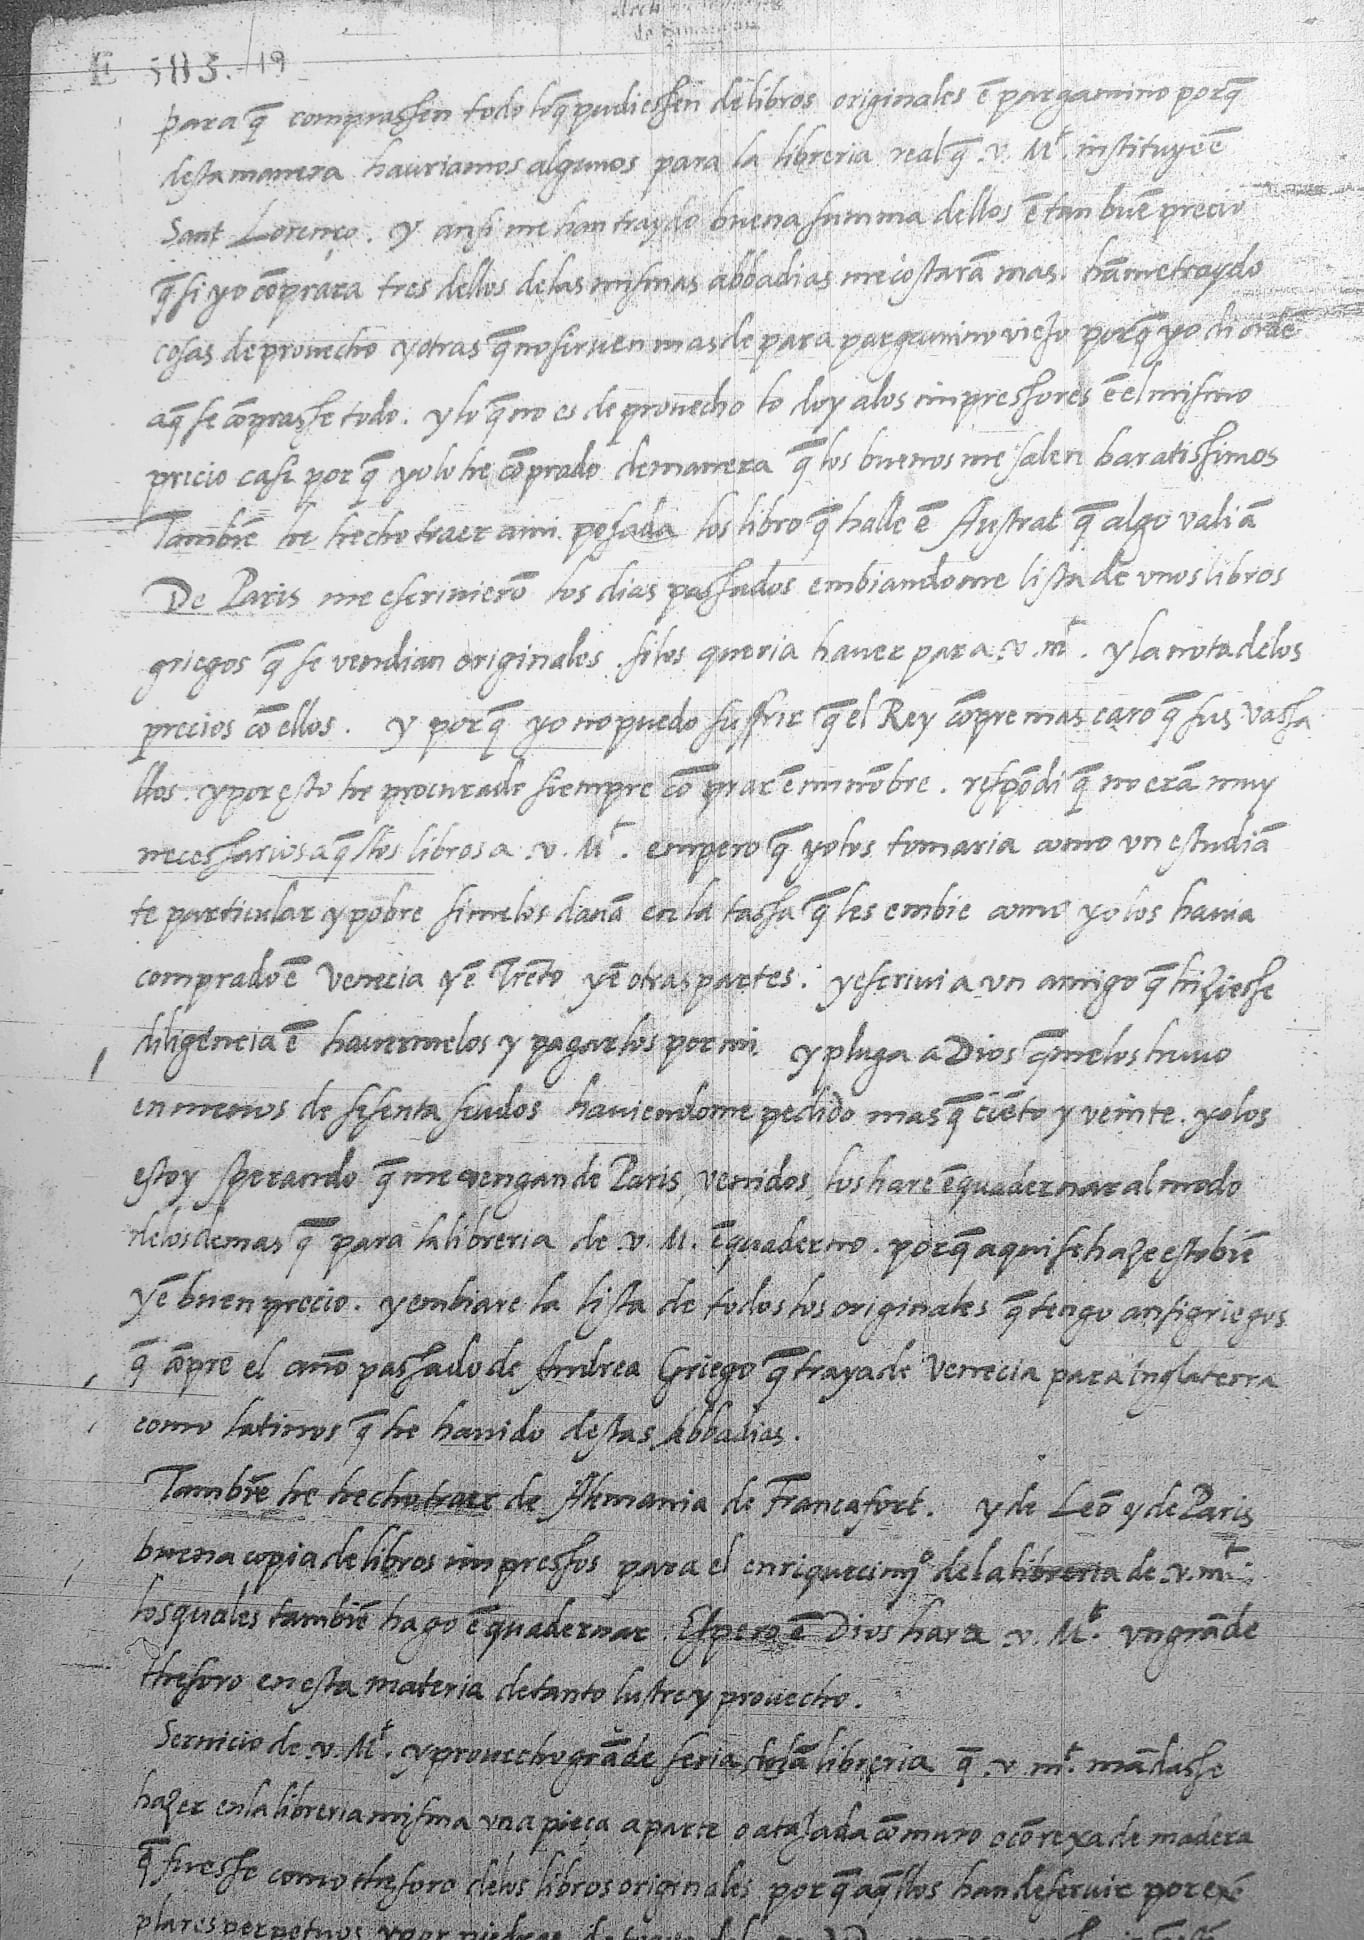 E 583.-19
para q̃ comprassen todo lo q̃ pudiessen de libros originales ẽ pargamino porq̃
desta manera hauriamos algunos para la libreria real q̃ .v. M.ᵗ instituye ẽ
Sant Lorenço. y ansi me han traydo buena summa dellos ẽ tan buẽ precio
q̃ si yo cõprara tres dellos de las mismas abbadias me costarã mas. hãme traydo
cosas de prouecho y otras q̃ no siruen mas de para pargamino viejo porq̃ yo di ordẽ
a q̃ se cõprasse todo. y lo q̃ no es de prouecho lo doy a los impressores ẽ el mismo
precio casi por q̃ yo lo he cõprado de manera q̃ los buenos me salen baratissimos
Tambiẽ he hecho traer a mi posada los libro q̃ halle ẽ Austrat q̃ algo valiã
De Paris me escriuierõ los dias passados embiandome lista de vnos libros
griegos q̃ se vendian originales. si los queria hauer para .v. m.ᵗ y la nota de los
precios cõ ellos. y porq̃ yo no puedo suffrir q̃ el Rey cõpre mas caro q̃ sus vassa
llos. y por esto he procurado siempre cõprar ẽ mi nõbre. respõdi q̃ no erã muy
necessarios aq̃stos libros a .v. M.ᵗ empero q̃ yo los tomaria como vn estudiã
te particular y pobre si me los dauã en la tassa q̃ les embie como yo los hauia
comprado ẽ Venecia y ẽ Trẽto y ẽ otras partes. y escriui a vn amigo q̃ hiziesse
diligẽncia ẽ hauermelos y pagarlos por mi. y pluga a Dios q̃ me los huuo
en menos de sesenta scudos hauiendome pedido mas q̃ ciẽto y veinte. yo los
estoy sperando q̃ me vengan de Paris, venidos, los hare ẽquadernar al modo
de los demas q̃ para la libreria de .v. M. ẽquaderno. porq̃ aqui se haze esto biẽ
y ẽ buen precio. y embiare la lista de todos los originales q̃ tengo ansi griegos
q̃ cõpre el año passado de Andrea Griego q̃ traya de Venecia para Inglaterra
como latinos q̃ he hauido destas Abbadias.
Tambiẽ he hecho traer de Alemania de Francafort. y de Leõ y de Paris
buena copia de libros impressos para el enriquecimj̊ de la libreria de .v. m.ᵗ
los quales tambiẽ hago ẽquadernar. Espero ẽ Dios hara .v. M.ᵗ vn grãde
thesoro en esta materia de tanto lustre y prouecho.
Seruicio de .v. M.ᵗ y prouecho grãde seria libreria q̃ .v. m.ᵗ mãdasse
hazer en la libreria misma vna pieça aparte o atajada cõ muro o cõ rexa de madera
q̃ fuesse como thesoro de los libros originales porq̃ aq̃stos han de seruir por exẽ
plares perpetuos y por piedras de toque